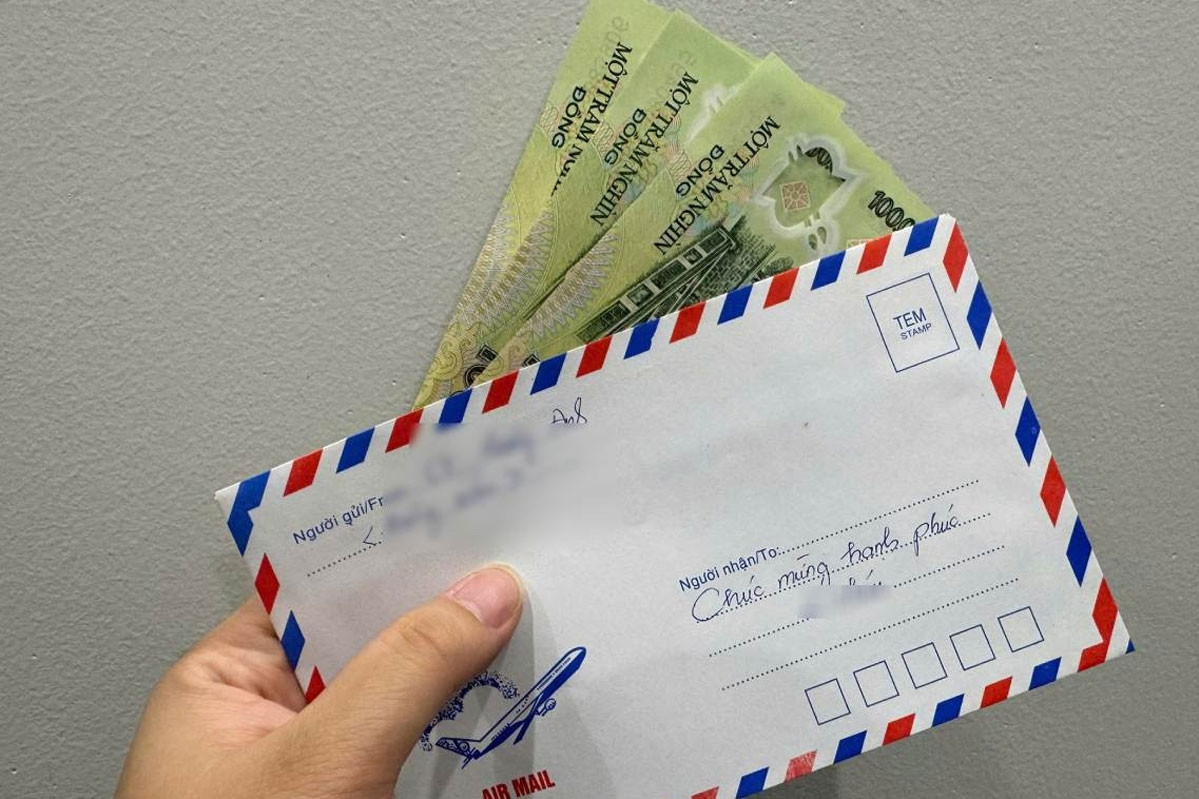 MỘT TRĂM
ĐỒNG
MỘT TRĂM NGHÌN
ĐỒNG
MỘT TRĂM NGHÌN
ĐỒNG
1000
TEM
STAMP
Người gửi/Fr
Người nhận/To:
Chúc mừng hạnh phúc
AIR MAIL